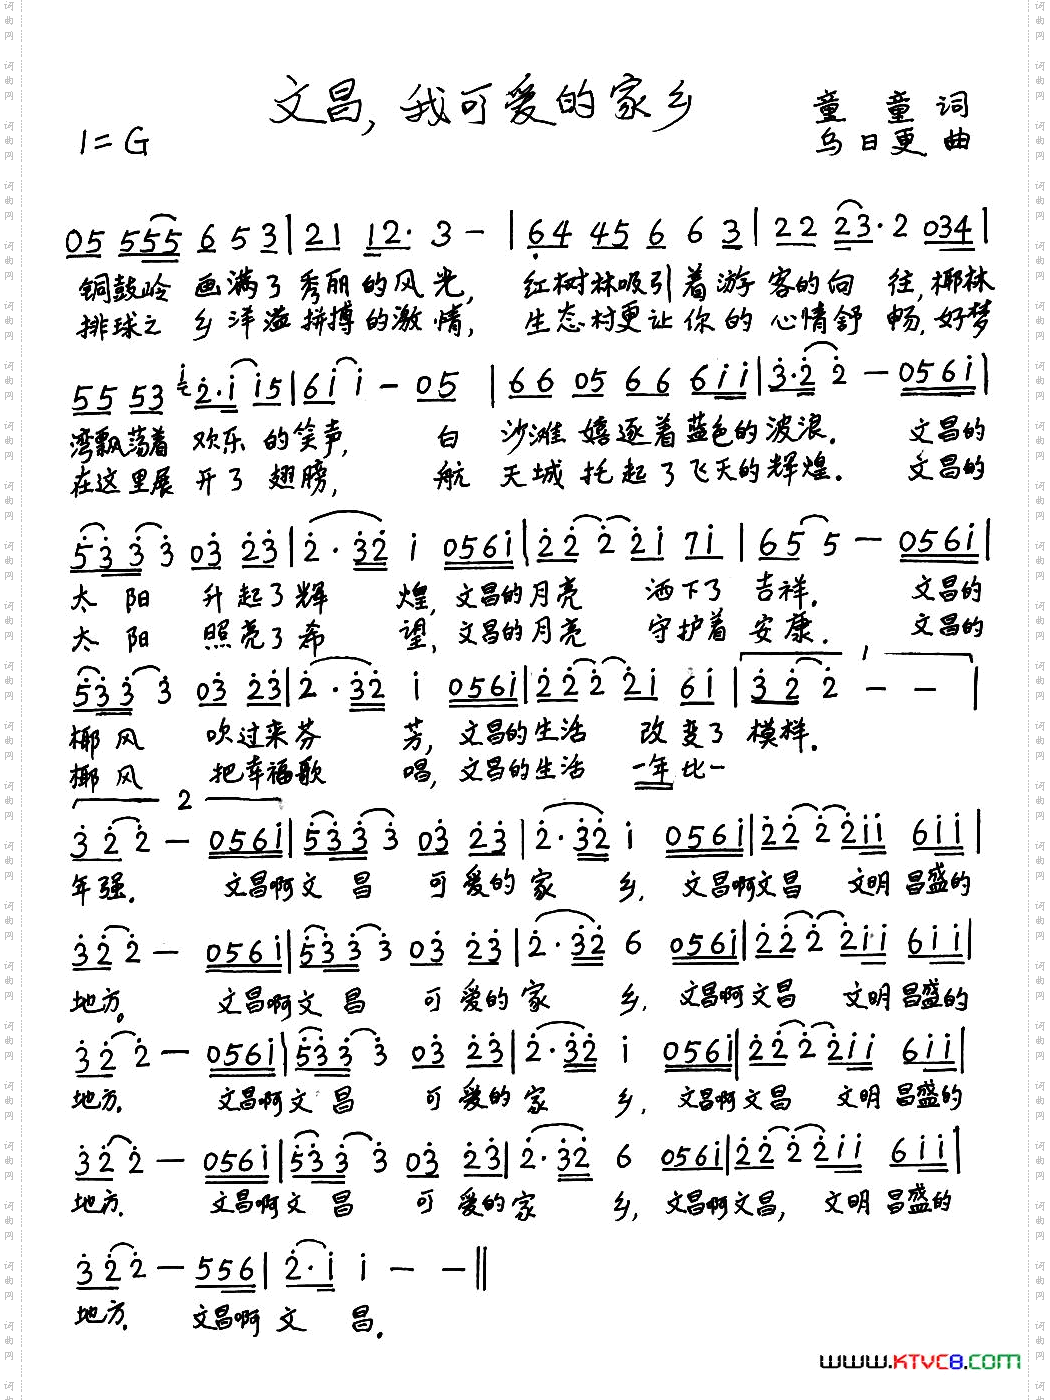 文昌，我可爱的家乡
童童词
1=G
乌日更曲
05 555 6 5 3 | 21 12· 3 － | 64 45 6 6 3 | 22 23·2 034 |
铜鼓岭 画满了秀丽的风光，红树林吸引着游客的向往，椰林
排球之乡洋溢拼搏的激情，生态村更让你的心情舒畅，好梦
55 53 i 2·i i5 | 6i i － 05 | 66 05 66 6ii | 3·2 2 － 056i |
湾飘荡着 欢乐的笑声， 白沙滩嬉逐着蓝色的波浪. 文昌的
在这里展开了翅膀， 航天城托起了飞天的辉煌. 文昌的
533 3 03 23 | 2·32 i 056i | 22 2 2i 7i | 65 5 － 056i |
太阳 升起了辉煌，文昌的月亮 洒下了吉祥. 文昌的
太阳 照亮了希望，文昌的月亮 守护着安康. 文昌的
533 3 03 23 | 2·32 i 056i | 222 2i 6i | 1 32 2 － － |
椰风 吹过来芬芳，文昌的生活 改变了模样.
椰风 把幸福歌唱，文昌的生活 一年比一
2
32 2 － 056i | 533 3 03 23 | 2·32 i 056i | 22 2 2ii 6ii |
年强. 文昌啊文昌 可爱的家乡，文昌啊文昌 文明昌盛的
32 2 － 056i | 533 3 03 23 | 2·32 6 056i | 222 2ii 6ii |
地方。 文昌啊文昌 可爱的家乡，文昌啊文昌 文明昌盛的
32 2 － 056i | 533 3 03 23 | 2·32 i 056i | 222 2ii 6ii |
地方. 文昌啊文昌 可爱的家乡，文昌啊文昌 文明昌盛的
32 2 － 056i | 533 3 03 23 | 2·32 6 056i | 22 2 2ii 6ii |
地方. 文昌啊文昌 可爱的家乡，文昌啊文昌，文明昌盛的
32 2 － 556 | 2·i i － － ‖
地方. 文昌啊文昌.
www.KTVC8.COM